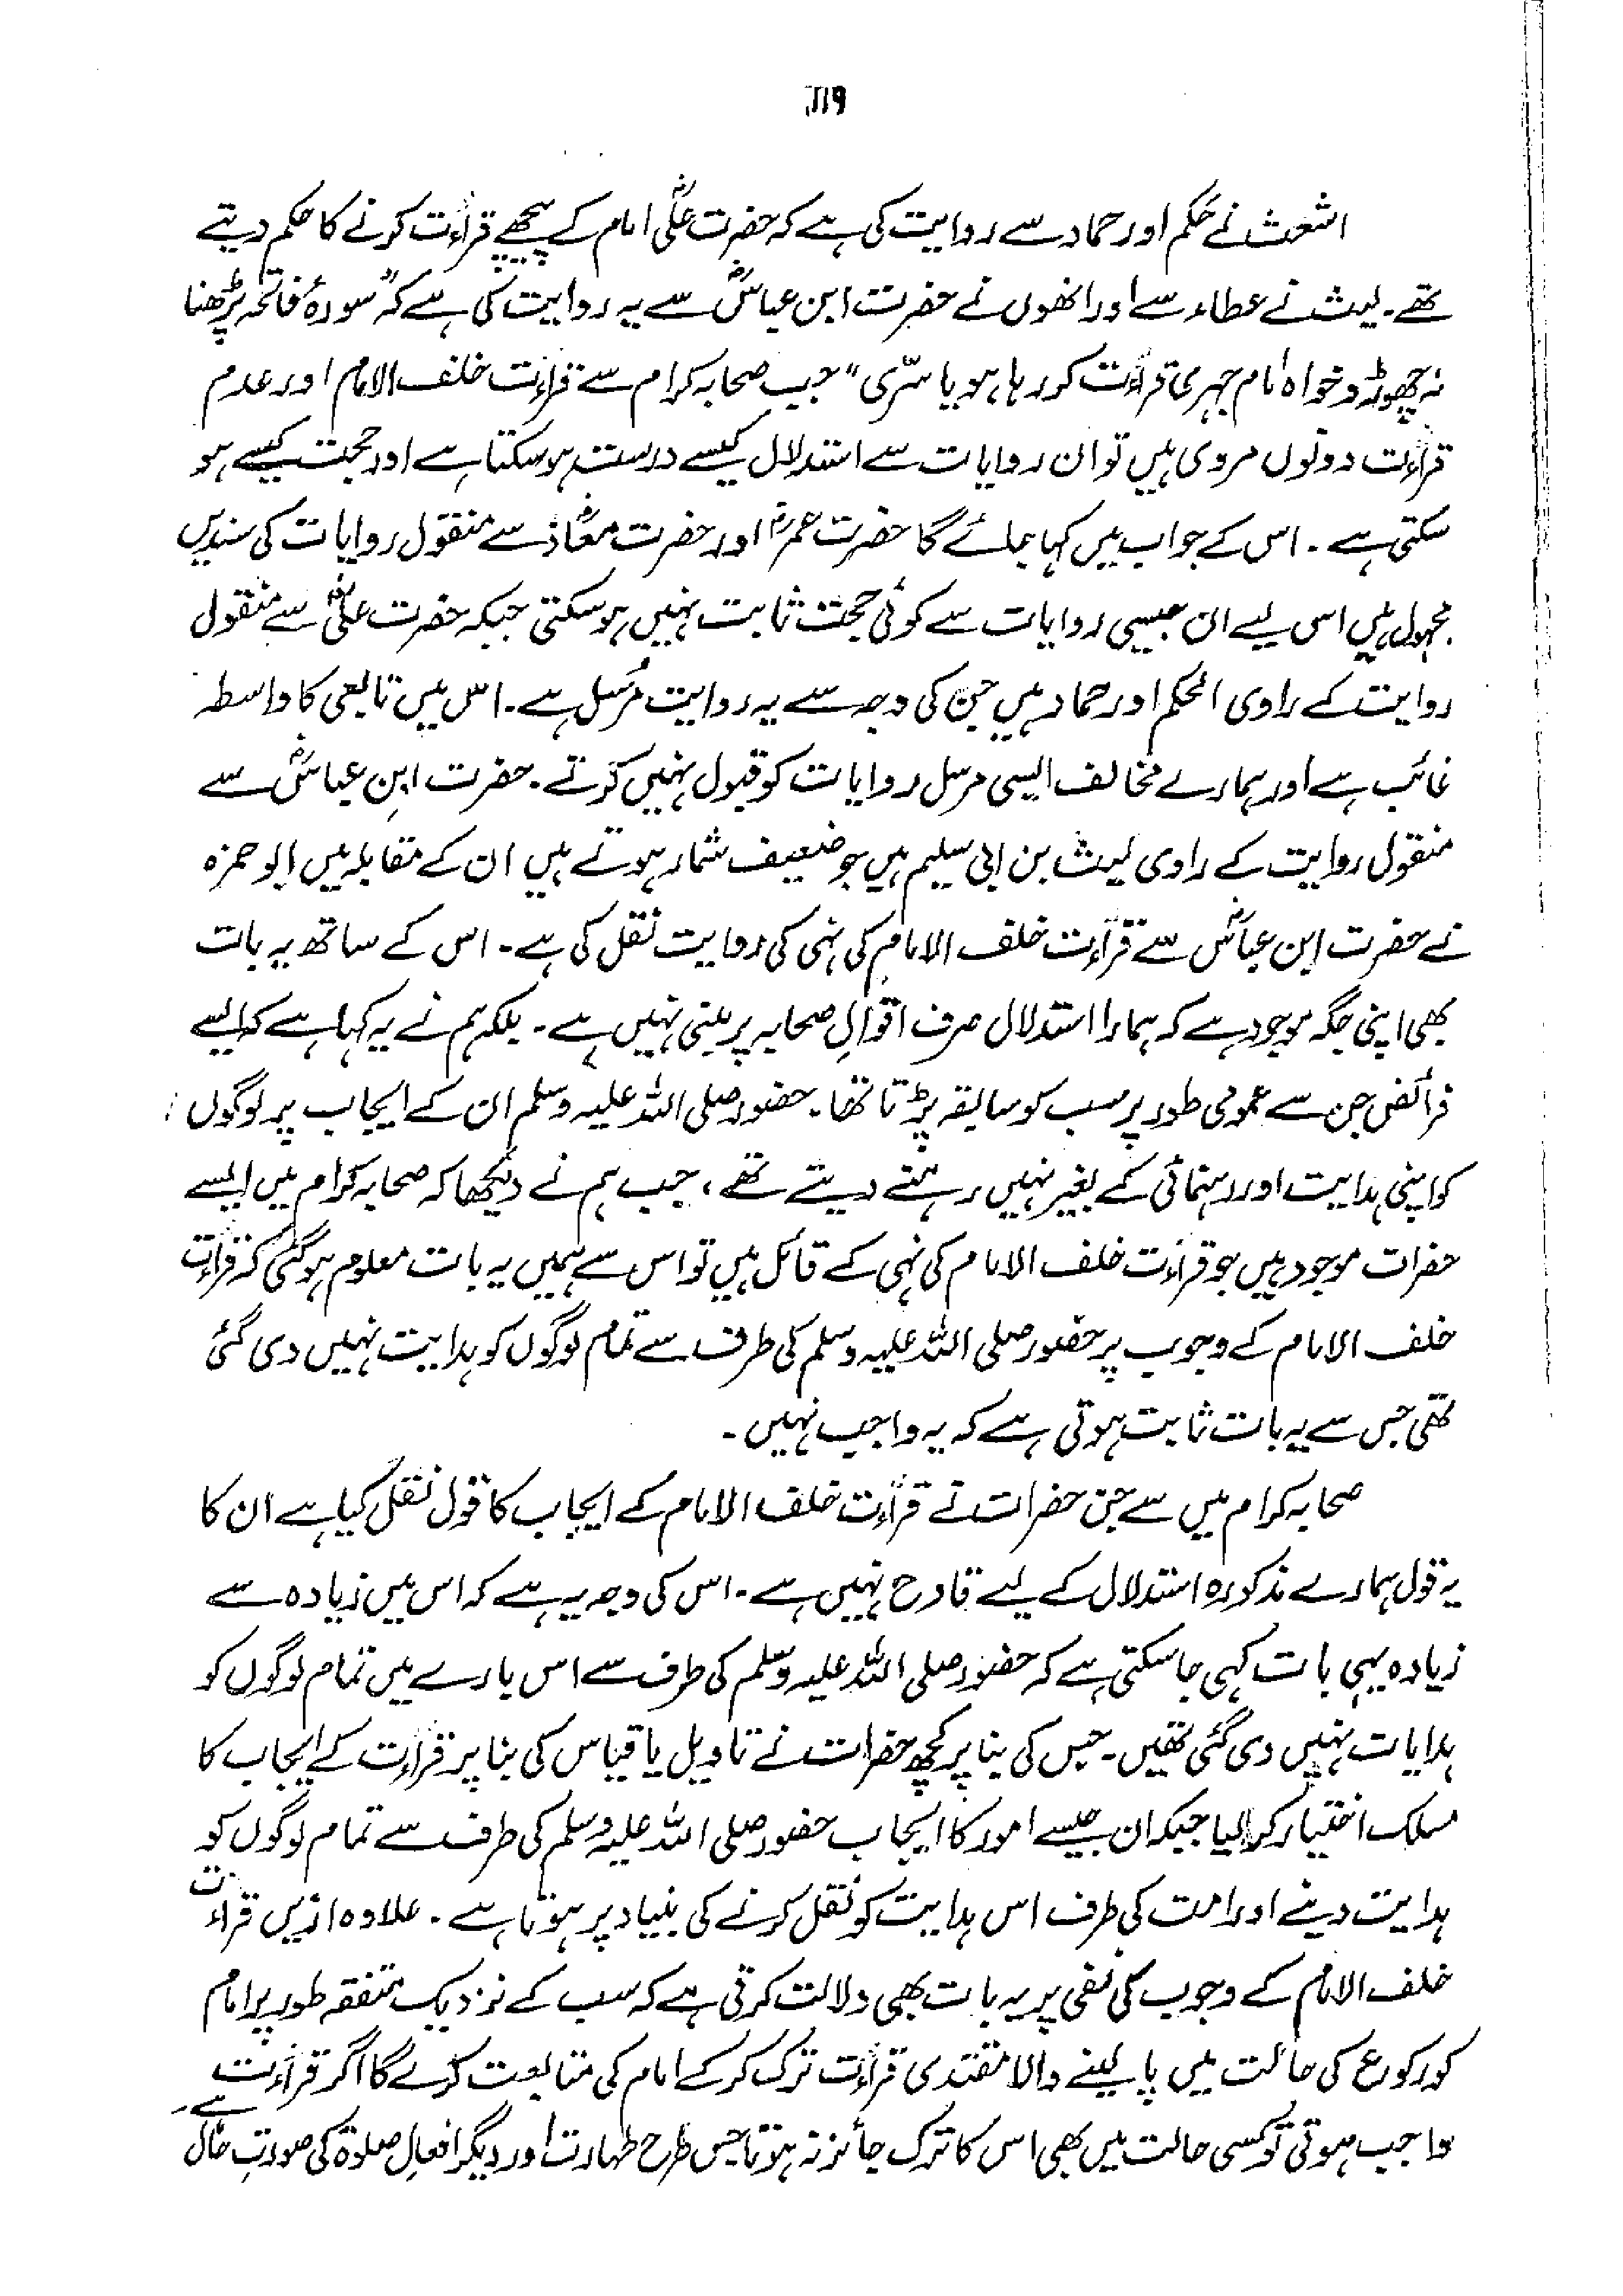 ۱۱۹
اشعث نے حکم اور حماد سے روایت کی ہے کہ حضرت علیؓ امام کے پیچھے قرأت کرنے کا حکم دیتے
تھے۔ لیث نے عطاء سے اور انھوں نے حضرت ابن عباسؓ سے یہ روایت کی ہے کہ "سورۂ فاتحہ پڑھنا
نہ چھوڑو خواہ امام جہری قرأت کر رہا ہو یا سرّی" جب صحابہ کرام سے قرأت خلف الامام اور عدم
قرأت دونوں مروی ہیں تو ان روایات سے استدلال کیسے درست ہو سکتا ہے اور حجت کیسے ہو
سکتی ہے۔ اس کے جواب میں کہا جائے گا حضرت عمرؓ اور حضرت معاذؓ سے منقول روایات کی سندیں
مجہول ہیں اس لیے ان جیسی روایات سے کوئی حجت ثابت نہیں ہو سکتی جبکہ حضرت علیؓ سے منقول
روایت کے راوی الحکم اور حماد ہیں جن کی وجہ سے یہ روایت مُرسل ہے۔ اس میں تابعی کا واسطہ
غائب ہے اور ہمارے مخالف ایسی مرسل روایات کو قبول نہیں کرتے۔ حضرت ابنِ عباسؓ سے
منقول روایت کے راوی لیث بن ابی سلیم ہیں جو ضعیف شمار ہوتے ہیں ان کے مقابلہ میں ابو حمزہ
نے حضرت ابن عباسؓ سے قرأت خلف الامام کی نہی کی روایت نقل کی ہے۔ اس کے ساتھ یہ بات
بھی اپنی جگہ موجود ہے کہ ہمارا استدلال صرف اقوالِ صحابہ پر مبنی نہیں ہے۔ بلکہ ہم نے یہ کہا ہے کہ ایسے
فرائض جن سے عمومی طور پر سب کو سابقہ پڑتا تھا۔ حضور صلی اللہ علیہ وسلم ان کے ایجاب پر لوگوں
کو اپنی ہدایت اور رہنمائی کے بغیر نہیں رہنے دیتے تھے، جب ہم نے دیکھا کہ صحابہ کرام میں ایسے
حضرات موجود ہیں جو قرأت خلف الامام کی نہی کے قائل ہیں تو اس سے ہمیں یہ بات معلوم ہو گئی کہ قرأت
خلف الامام کے وجوب پر حضور صلی اللہ علیہ وسلم کی طرف سے تمام لوگوں کو ہدایت نہیں دی گئی
تھی جس سے یہ بات ثابت ہوتی ہے کہ یہ واجب نہیں۔
صحابہ کرام میں سے جن حضرات نے قرأت خلف الامام کے ایجاب کا قول نقل کیا ہے ان کا
یہ قول ہمارے مذکورہ استدلال کے لیے قادح نہیں ہے۔ اس کی وجہ یہ ہے کہ اس میں زیادہ سے
زیادہ یہی بات کہی جا سکتی ہے کہ حضور صلی اللہ علیہ وسلم کی طرف سے اس بارے میں تمام لوگوں کو
ہدایات نہیں دی گئی تھیں۔ جس کی بنا پر کچھ حضرات نے تاویل یا قیاس کی بنا پر قرأت کے ایجاب کا
مسلک اختیار کر لیا جبکہ ان جیسے امور کا ایجاب حضور صلی اللہ علیہ وسلم کی طرف سے تمام لوگوں کو
ہدایت دینے اور امت کی طرف اس ہدایت کو نقل کرنے کی بنیاد پر ہوتا ہے۔ علاوہ ازیں قرأت
خلف الامام کے وجوب کی نفی پر یہ بات بھی دلالت کرتی ہے کہ سب کے نزدیک متفقہ طور پر امام
کو رکوع کی حالت میں پا لینے والا مقتدی قرأت ترک کر کے امام کی متابعت کرے گا اگر قرأت
واجب ہوتی تو کسی حالت میں بھی اس کا ترک جائز نہ ہوتا جس طرح طہارت اور دیگر افعالِ صلوٰۃ کی صورتِ حال ہے۔